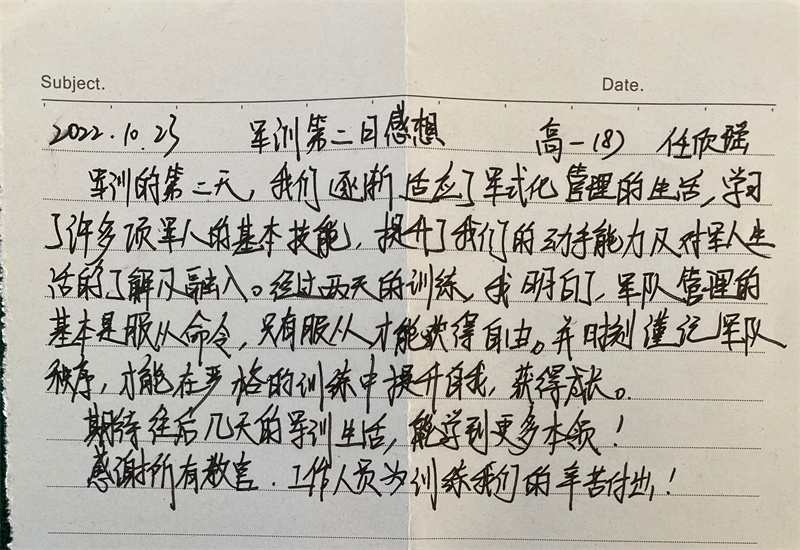 Subject. Date.
2022.10.23 军训第二日感想 高一(8) 任欣瑶
军训的第二天,我们逐渐适应了军式化管理的生活,学习
了许多项军人的基本技能,提升了我们的动手能力及对军人生
活的了解及融入。经过两天的训练,我明白了,军队管理的
基本是服从命令,只有服从才能获得自由。并时刻谨记军队
秩序,才能在严格的训练中提升自我,获得成长。
期待往后几天的军训生活,能学到更多本领!
感谢所有教官.工作人员为训练我们的辛苦付出!